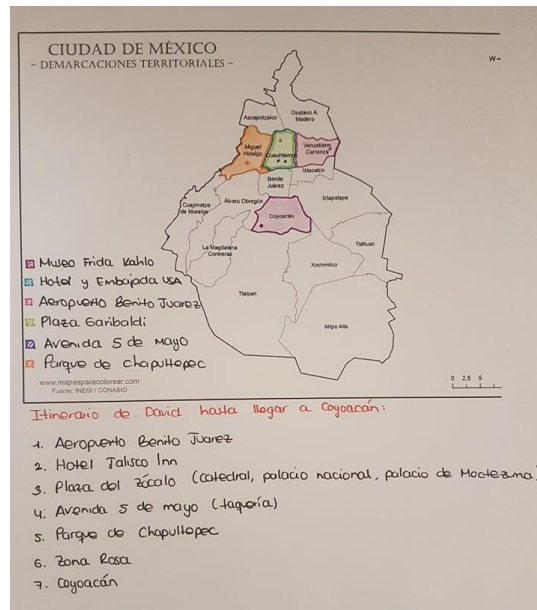 CIUDAD DE MÉXICO
- DEMARCACIONES TERRITORIALES -
W-
Azcapotzalco
Gustavo A.
Madero
Miguel
Hidalgo
Cuauhtémoc
Venustiano
Carranza
Iztacalco
Benito
Juárez
Cuajimalpa
de Morelos
Álvaro Obregón
Iztapalapa
Coyoacán
La Magdalena
Contreras
Tláhuac
Xochimilco
Tlalpan
Milpa Alta
Museo Frida Kahlo
Hotel y Embajada USA
Aeropuerto Benito Juarez
Plaza Garibaldi
Avenida 5 de Mayo
Parque de Chapultepec
www.mapasparacolorear.com
Fuente: INEGI / CONABIO
0 2,5 5
Itinerario de David hasta llegar a Coyoacán:
1. Aeropuerto Benito Juarez
2. Hotel Jalisco Inn
3. Plaza del Zócalo (catedral, palacio nacional, palacio de Moctezuma
4. Avenida 5 de mayo (taquería)
5. Parque de Chapultepec
6. Zona Rosa
7. Coyoacán